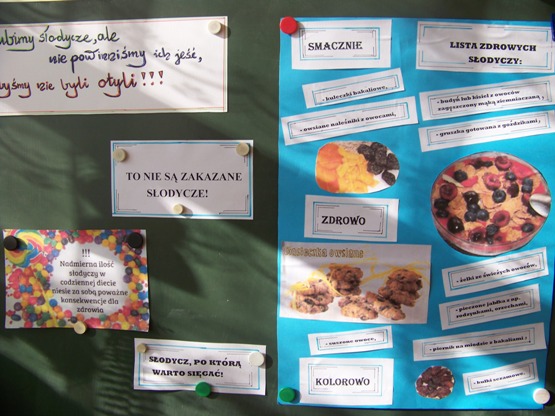 lubimy słodycze, ale
nie powinniśmy ich jeść,
byśmy nie byli otyli!!!
TO NIE SĄ ZAKAZANE
SŁODYCZE!
!!!
Nadmierna ilość
słodyczy w
codziennej diecie
niesie za sobą poważne
konsekwencje dla
zdrowia
SŁODYCZ, PO KTÓRĄ
WARTO SIĘGAĆ!
SMACZNIE
- bułeczki bakaliowe,
- owsiane naleśniki z owocami,
ZDROWO
ciasteczka owsiane
- suszone owoce,
KOLOROWO
LISTA ZDROWYCH
SŁODYCZY:
- budyń lub kisiel z owoców
zagęszczony mąką ziemniaczaną,
- gruszka gotowana z goździkami,
- żelki ze świeżych owoców,
- pieczone jabłka z np.
rodzynkami, orzechami,
- piernik na miodzie z bakaliami,
- kulki sezamowe.